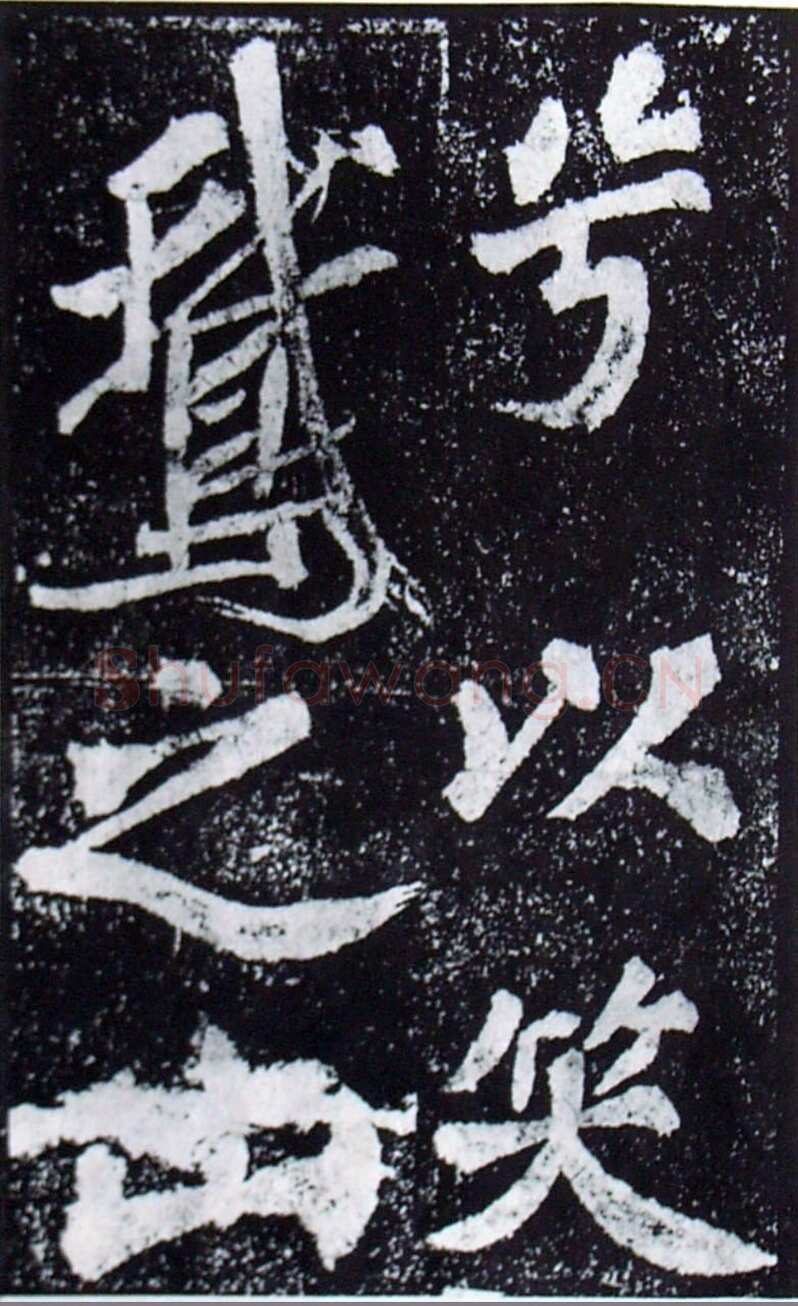 兮以笑
鵞之山
Shufawang.CN